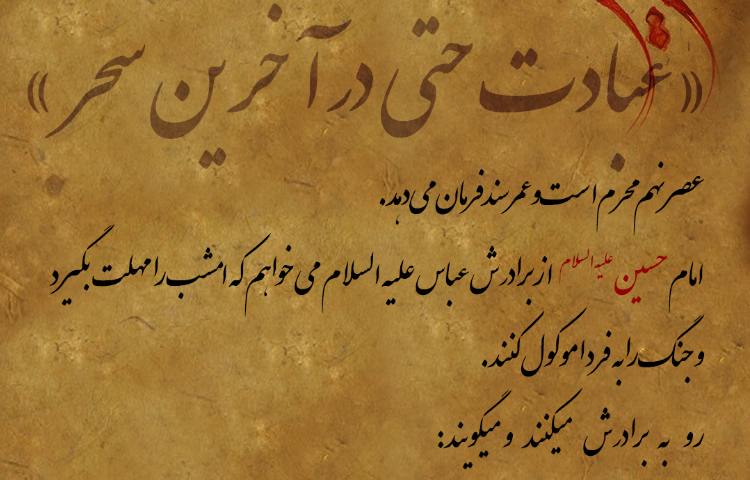 «عبادت حتی در آخرین سحر»
عصر نهم محرم است و عمر سند فرمان می دهد.
امام حسین علیه السلام از برادرش عباس علیه السلام می خواهم که امشب را مهلت بگیرد
و جنگ را به فردا موکول کنند.
رو به برادرش میکنند و میگویند: